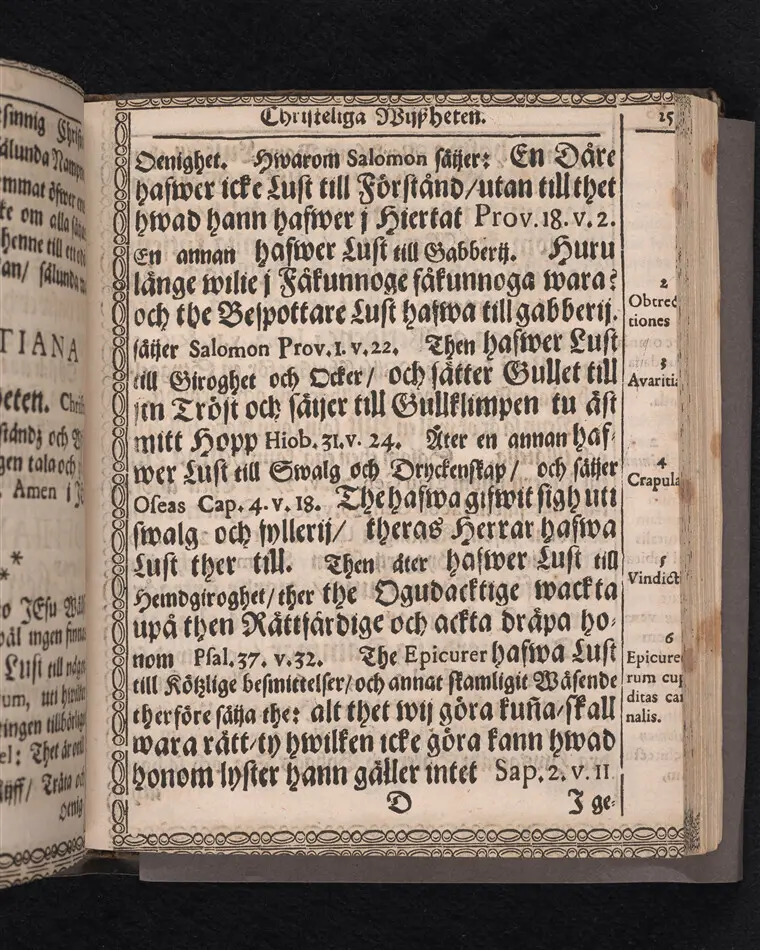 Christeliga Wijßheten.
25
Oenighet. Hwarom Salomon säijer: En Dåre
hafwer icke Lust till Förstånd/utan till thet
hwad hann hafwer j Hiertat Prov. 18. v. 2.
En annan hafwer Lust till Gabberij. Huru
länge wilie j Fåkunnoge fåkunnoga wara?
och the Bespottare Lust hafwa till gabberij.
säijer Salomon Prov. 1. v. 22. Then hafwer Lust
till Giroghet och Ocker/ och sätter Gullet till
sin Tröst och säijer till Gullklimpen tu äst
mitt Hopp Hiob. 31. v. 24. Åter en annan haf-
wer Lust till Swalg och Dryckenskap/ och säijer
Oseas Cap. 4. v. 18. The hafwa gifwit sigh uti
swalg och fyllerij/ theras Herrar hafwa
Lust ther till. Then åter hafwer Lust till
Hemdgiroghet/ther the Ogudacktige wackta
upå then Rättfärdige och ackta dräpa ho-
nom Psal. 37. v. 32. The Epicurer hafwa Lust
till Kötzlige besmittelser/och annat skamligit Wäsende
therföre säija the: alt thet wij göra kuña/skall
wara rätt/ty hwilken icke göra kann hwad
honom lyster hann gäller intet Sap. 2. v. 11
D
J ge-
2
Obtrec
tiones
3
Avaritia
4
Crapula
5
Vindict
6
Epicure
rum cup
ditas car
nalis.
TIANA
Amen i
* *
JEsu
ingen
Lust till
Thet är
Träta
Oenig